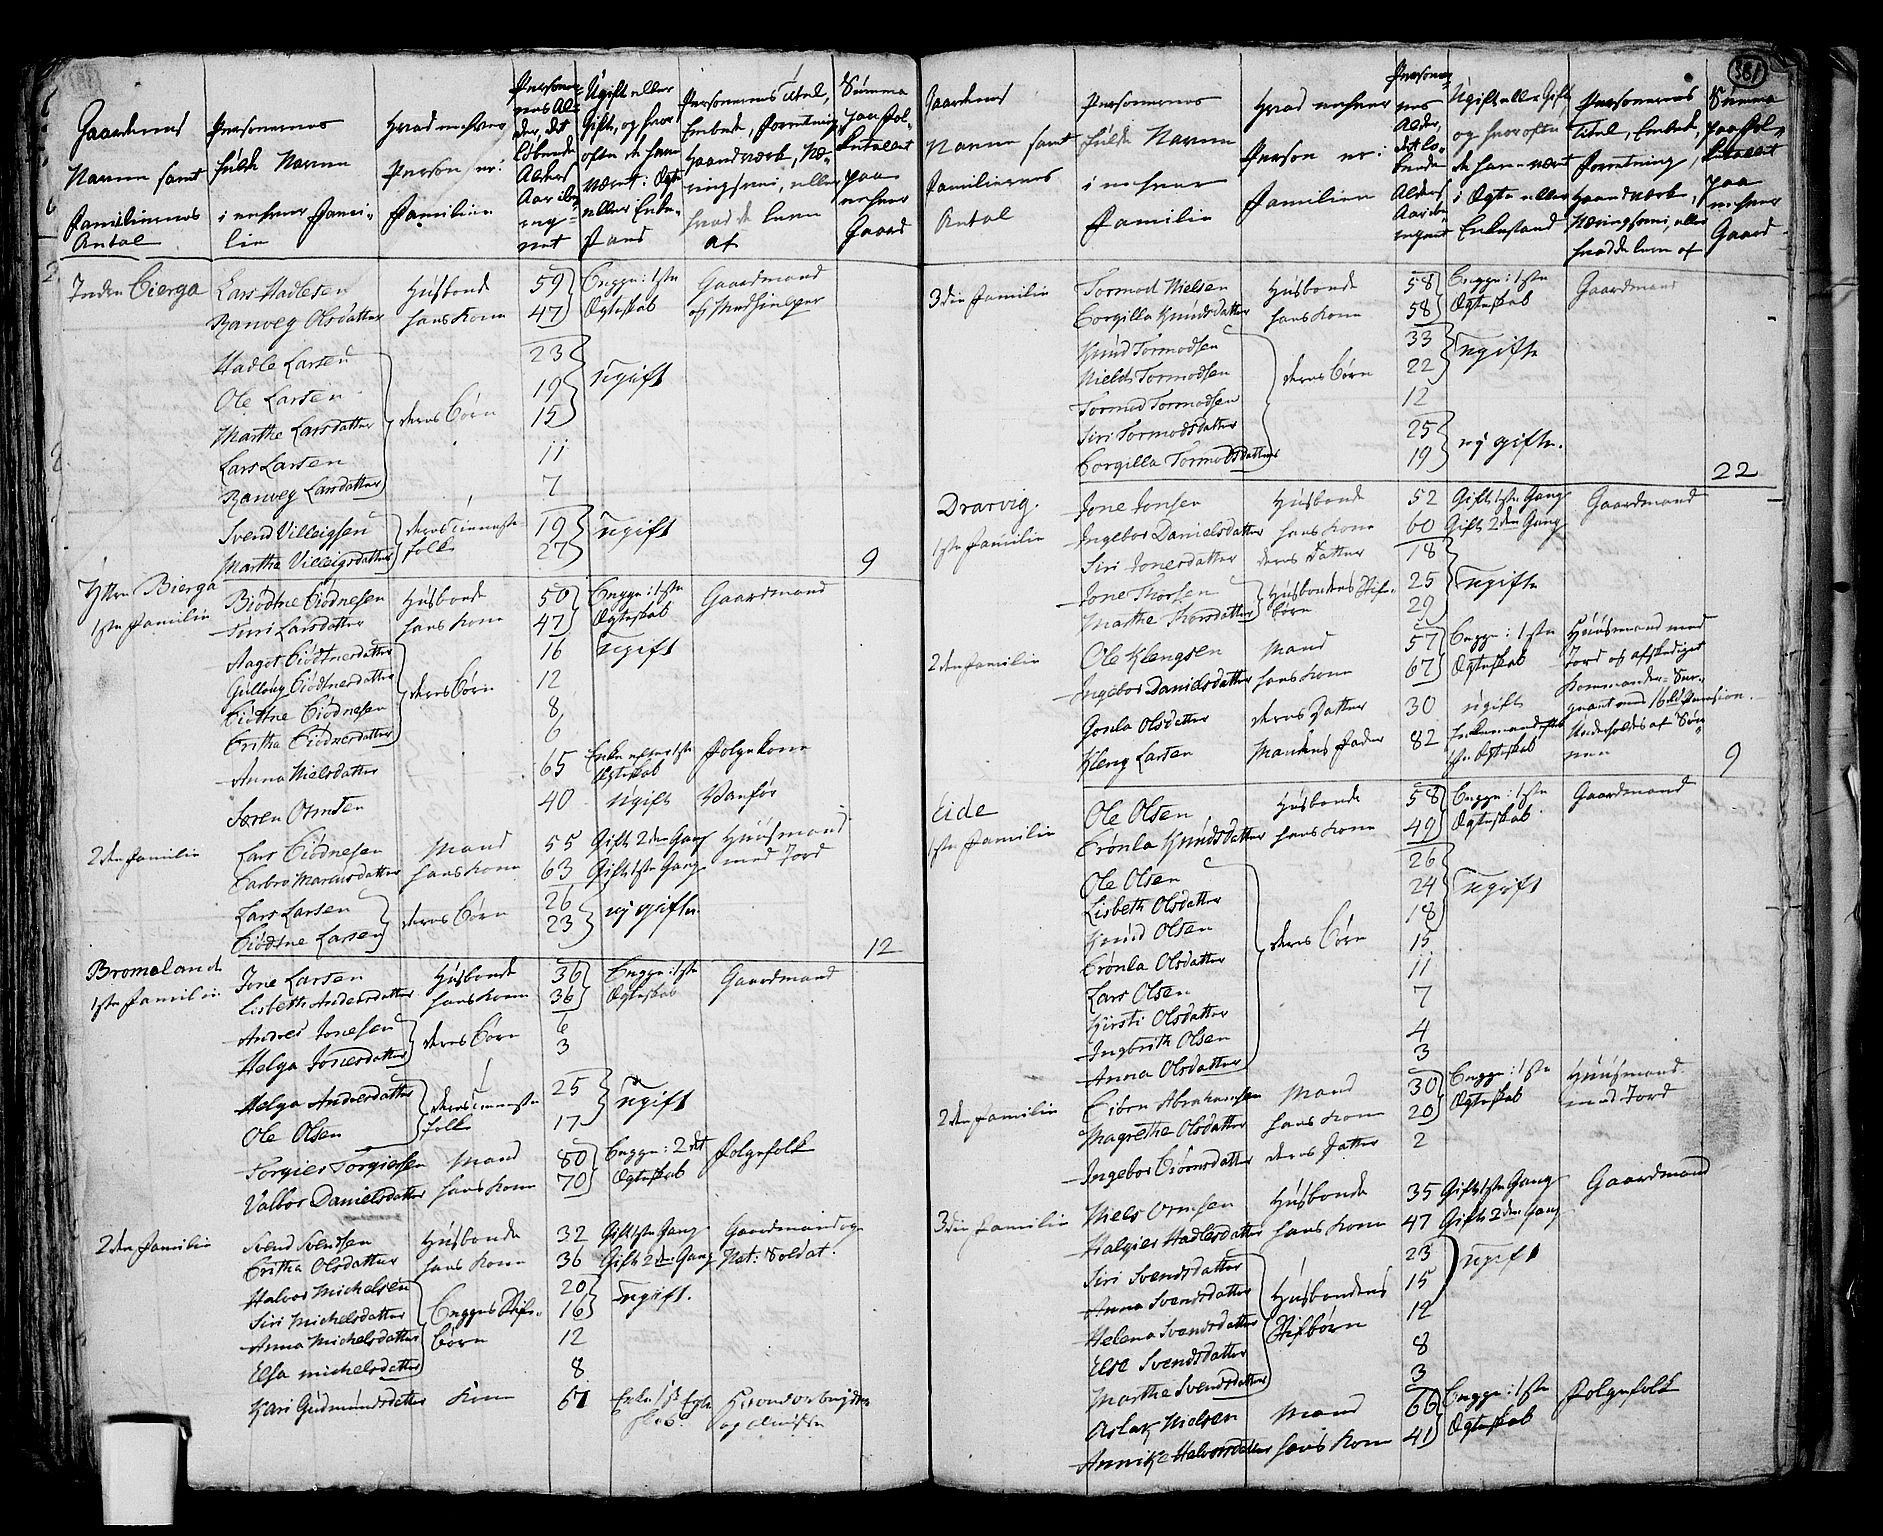 Gaardenes Navne samt Familiernes Antal
Personernes fulde Navne i enhver Familie
Hvad enhver Person er i Familien
Personernes Alder, det løbende Alders Aar iberegnet
Ugift eller Gift, og hvor ofte de have været i Ægte eller Enkestand
Personernes Titel, Embede, Forretning, Haandværk, Næringsvei, eller hvad de leve af
Summa paa Folketallet paa enhver Gaard
Inden Bierga Lars Hadlesen Husbonde 59 Begge i 1ste Gaardmand
Ranveg Olsdatter hans Kone 47 Ægteskab og Medhielper
Hadle Larsen 23
Ole Larsen 19 ugift
Marthe Larsdatter deres Børn 15
Lars Larsen 11
Ranveg Larsdatter 7
Svend Villeigsen deres Tieneste 19 ugift
Marthe Villeigsdatter folk 27 9
Ytten Bierga Biødtne Biødnesen Husbonde 50 Begge i 1ste Gaardmand
1ste Familie Siri Larsdatter hans Kone 47 Ægteskab
Aagot Biødtnesdatter 16 ugift
Gulloug Biødtnesdatter deres Børn 12
Biødtne Biødnesen 8
Britha Biødnesdatter 6
Anna Nielsdatter 65 Enke efter 1ste Ægteskab Folgekone
Søren Ormsen 40 ugift Vanfør
2den Familie Lars Biødnesen Mand 55 Gift 2den Gang Huusmand
Barbro Marcusdatter hans Kone 63 Gift 1ste Gang med Jord
Lars Larsen deres Børn 26 ugifte
Biødtne Larsen 23 12
Bromeland Jone Larsen Husbonde 36 Begge i 1ste Gaardmand
1ste Familie Lisbeth Andersdatter hans Kone 36 Ægteskab
Andres Jonesen deres Børn 6
Helga Jonesdatter 3
Helga Andersdatter deres Tieneste 25 ugift
Ole Olsen folk 17
Torgier Torgiersen Mand 80 Begge i 2det Folgefolk
Valbor Danielsdatter hans Kone 70 Ægteskab
2den Familie Svend Svendsen Husbonde 32 Gift 1ste Gang Gaardmand og
Britha Olsdatter hans Kone 36 Gift 2den Gang Nat: Soldat.
Halvor Michelsen 20
Siri Michelsdatter Begges Stif- 16 ugift.
Anna Michelsdatter børn 12
Elsa Michelsdatter 8
Kari Gudmundsdatter Kone 67 Enke

381
Gaardenes Navne samt Familiernes Antal
Personernes fulde Navne i enhver Familie
Hvad enhver Person er i Familien
Personernes Alder, det løbende Alders Aar iberegnet
Ugift eller Gift, og hvor ofte de have været i Ægte eller Enkestand
Personernes Titel, Embede, Forretning, Haandværk, Næringsvei, eller hvad de leve af
Summa paa Folketallet paa enhver Gaard
3die Familie Tormod Nielsen Husbonde 58 Begge i 1ste Gaardmand
Borgilla Knudsdatter hans Kone 58 Ægteskab
Knud Tormodsen 33 ugifte
Niels Tormodsen deres Børn 22
Tormod Tormodsen 12
Siri Tormodsdatter 25 ugifte.
Borgilla Tormodsdatter 19 22
Drarvig. Jone Jonsen Husbonde 52 Gift 1ste Gang Gaardmand
1ste Familie Ingebor Danielsdatter hans Kone 60 Gift 2den Gang
Siri Jonesdatter deres Datter 18
Jone Thorsen Husbondens Stif- 25 ugifte
Marthe Thorsdatter børn 29
2den Familie Ole Klengsen Mand 57 Begge i 1ste Huusmand med
Ingebor Danielsdatter hans Kone 67 Ægteskab Jord og afskediget
Gonla Olsdatter deres Datter 30 ugift Kommandeer Ser-
geant med 16 rd Pension.
Kleng Larsen Mandens Fader 82 Enkemand efter 1ste Ægteskab Underholdes af Sønnen 9
Eide Ole Olsen Husbonde 58 Begge i 1ste Gaardmand
1ste Familie Brønla Knudsdatter hans Kone 49 Ægteskab
Ole Olsen 26
Lisbeth Olsdatter 24 ugift
Knud Olsen 18
Brønla Olsdatter deres Børn 15
Lars Olsen 11
Kirsti Olsdatter 7
Ingbrith Olsen 4
Anna Olsdatter 3
2den Familie Biørn Abrahamsen Mand 30 Begge i 1ste Huusmand
Magrethe Olsdatter hans Kone 20 Ægteskab med Jord
Ingebor Biørnsdatter deres Datter 2
3die Familie Niels Ormsen Husbonde 35 Gift 1ste Gang Gaardmand
Halgier Hadlesdatter hans Kone 47 Gift 2den Gang
Siri Svendsdatter 23 ugift
Anna Svendsdatter Husbondens 15
Helena Svendsdatter Stifbørn 12
Else Svendsdatter 8
Marthe Svendsdatter 3
Aslak Nielsen Mand 66 Begge i 1ste Folgefolk
Annike Halvorsdatter hans Kone 41 Ægteskab